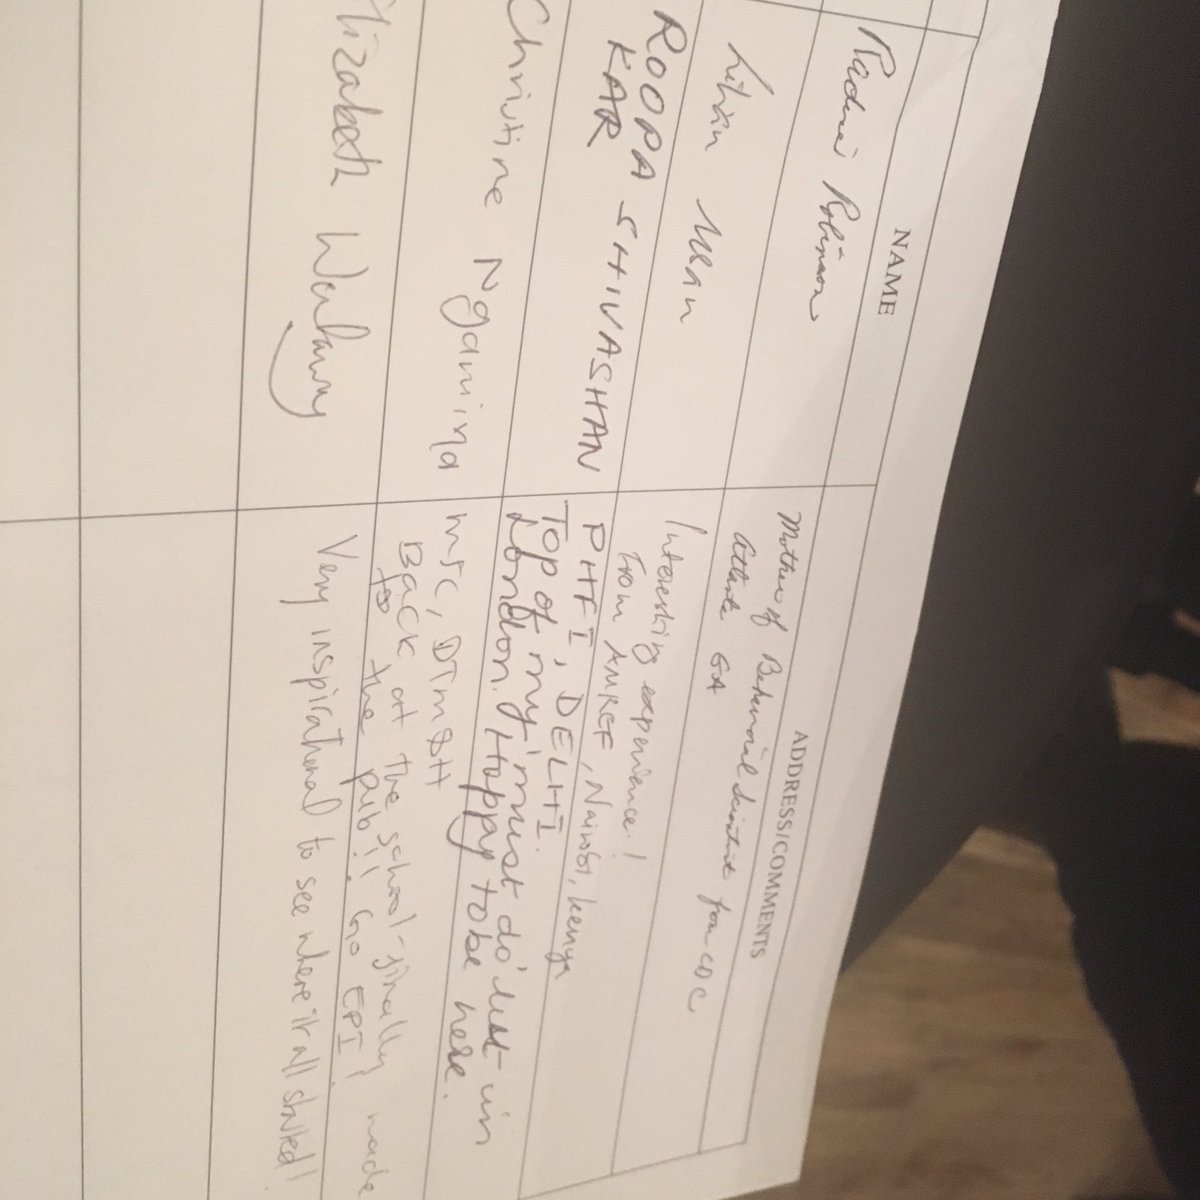 NAME
ADDRESS/COMMENTS
Robinson
Mother of Behavioral Scientist from CDC
Atlanta GA
Lilian
Interesting experience!
From AMREF, Nairobi, Kenya
ROOPA SHIVASHAN
KAR
PHFI, DELHI.
Top of my 'must do' list in
London. Happy to be here.
Christine Ngamina
MSc, DTM&H
Back at the school - finally made
to the pub!! Go EPI!
Elizabeth
Very inspirational to see where it all started!